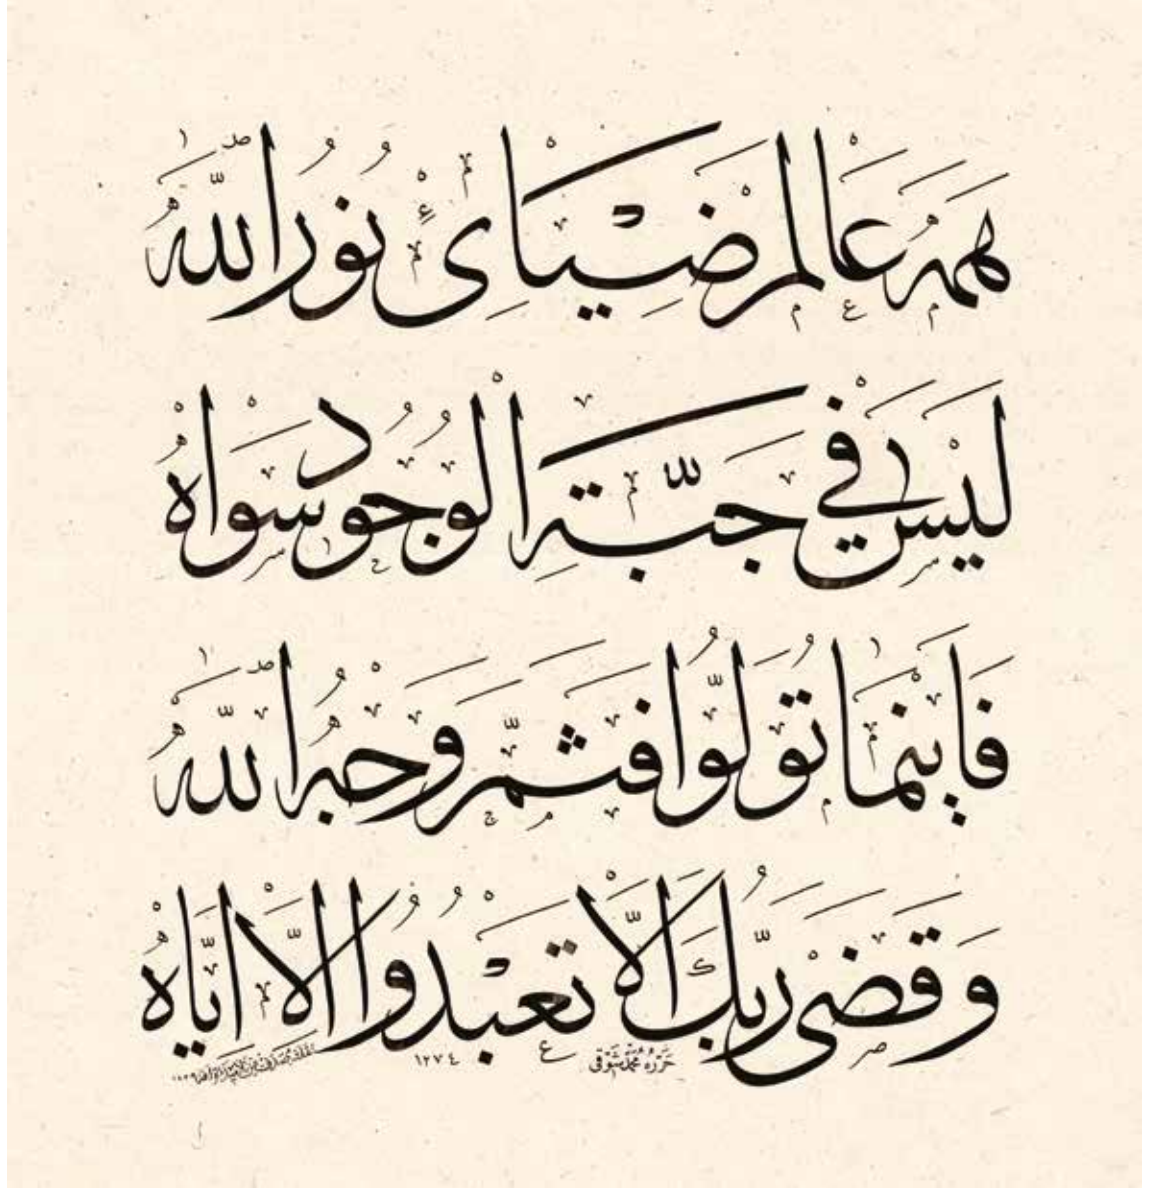 همه عالم ضیای نور الله
لیس فی جبة الوجود سواه
فاینما تولوا فثم وجه الله
وقضی ربك الا تعبدوا الا ایاه
حرره محمد شوقی
١٢٧٤